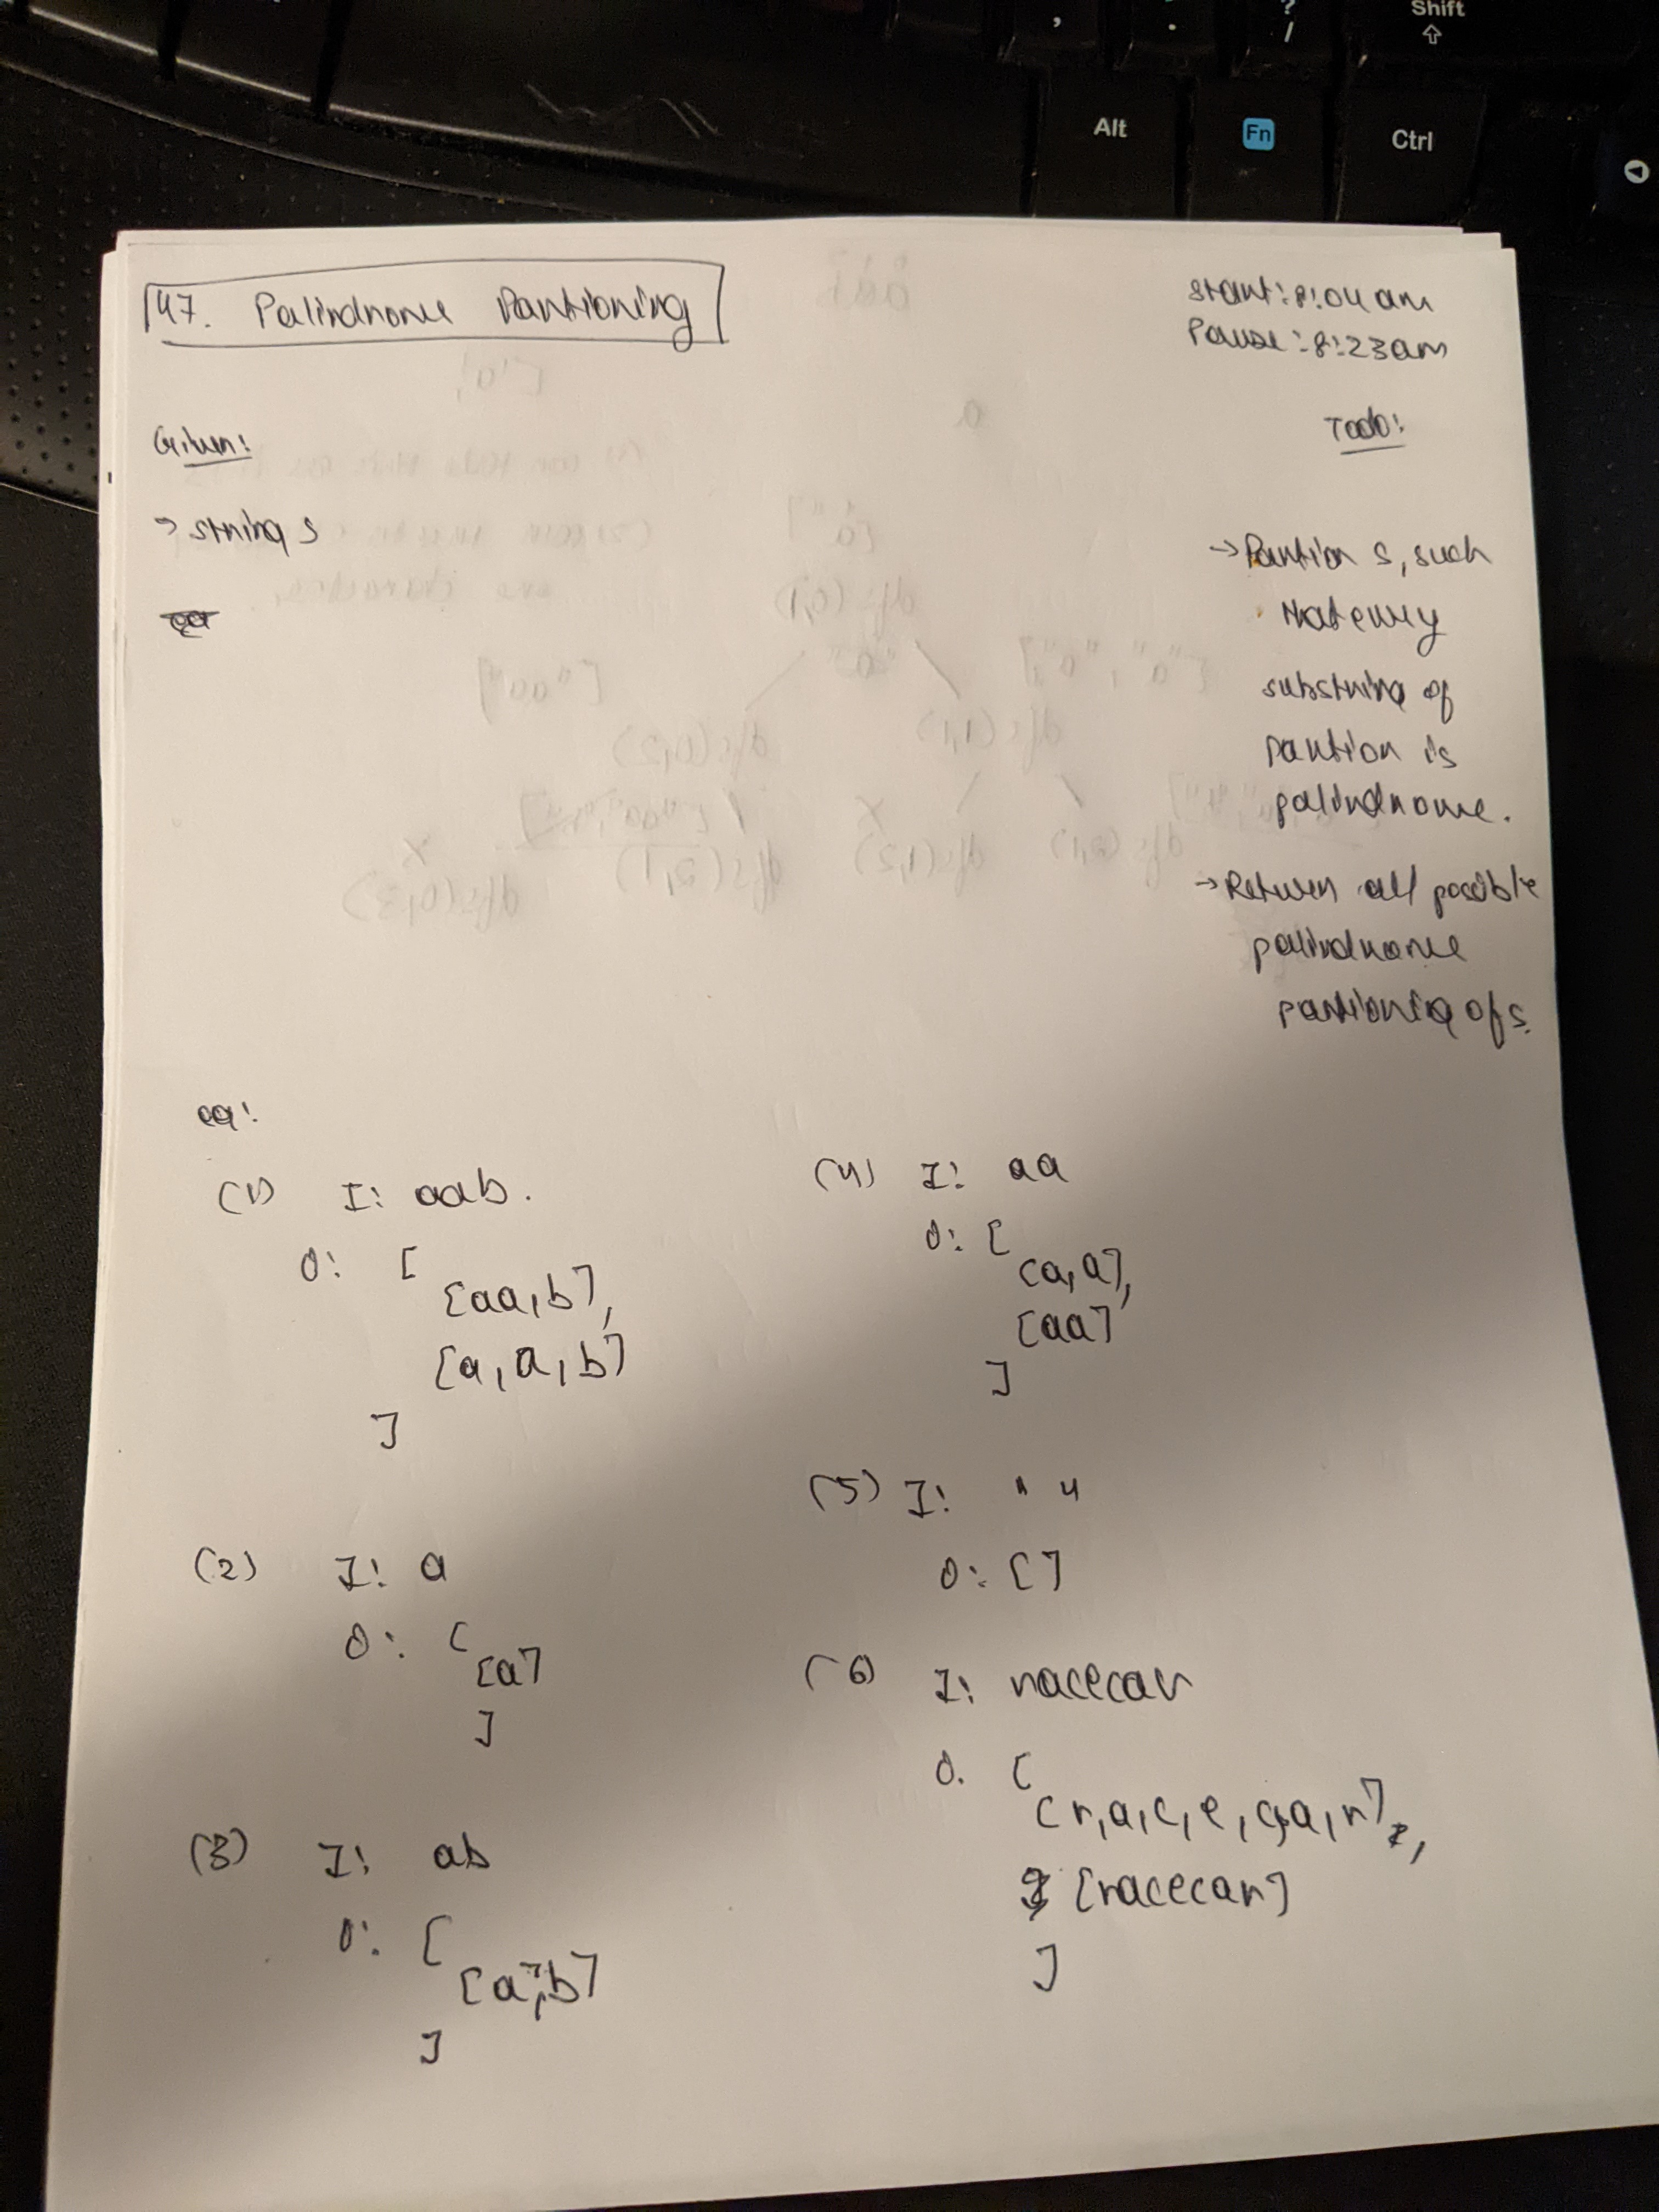 Shift
, . ? /
Alt Fn Ctrl
147. Palindrome Partioning
start: 8:04 am
Pause: 8:23am
Given:
Todo:
→ string s
→ Partion s, such
that every
substring of
partion is
palindrome.
→ Return all possible
palindrome
partioning of s.
eg:
(1) I: aab.
O: [
[aa,b],
[a,a,b]
]
(2) I: a
O: [
[a]
]
(3) I: ab
O: [
[a,b]
]
(4) I: aa
O: [
[a,a],
[aa]
]
(5) I: " "
O: []
(6) I: racecar
O. [
[r,a,c,e,c,a,r],
[racecar]
]